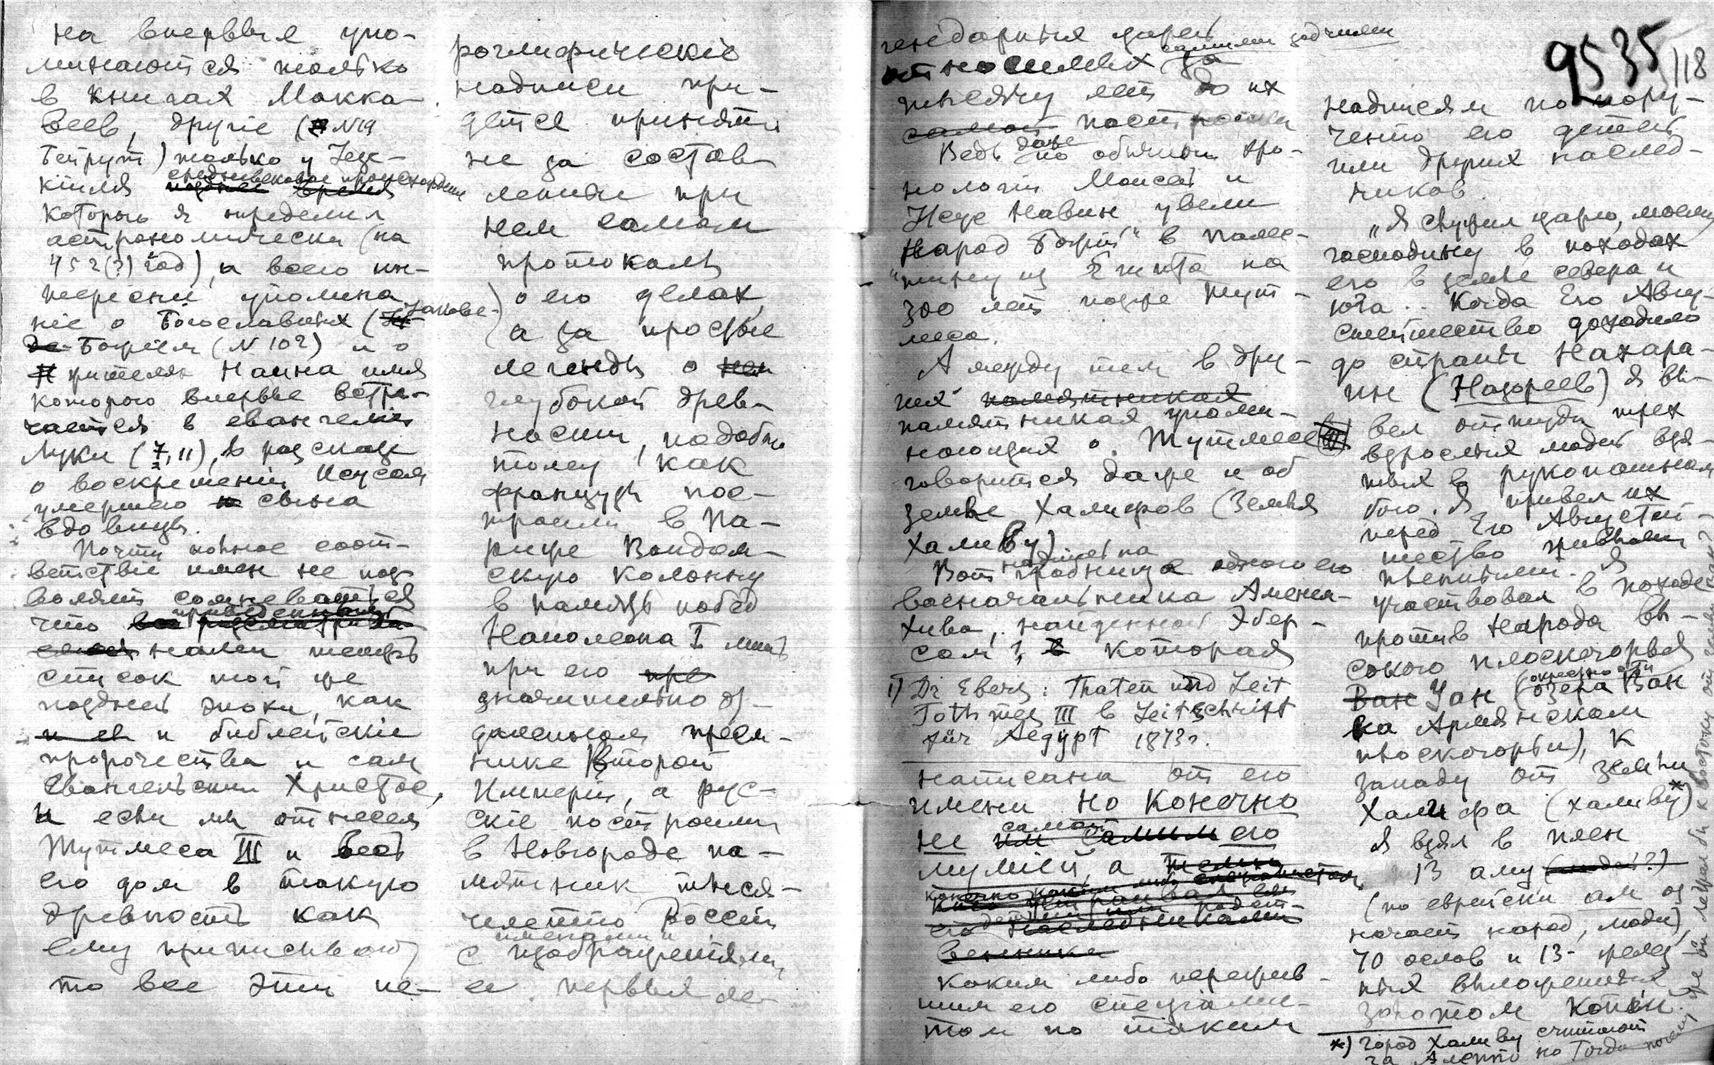 на впервые упо-
минаются только
в книгах Макка-
веев, другіе (N19
Бейрут) только у Іезе-
кіиля средневековое происхожденіе
которого я определил
астрономически (на
452(?) год), а всего ин-
тересней упомина
ніе о Богославцах (Іакове-
Богіем (N 102) и о
жителях Наина имя
которого впервые встре-
чается в евангеліи
Луки (7,11), в рассказе
о воскрешеніи Исусом
умершего сына
вдовицы.
Почти полное соот-
ветствіе имен не поз-
воляет сомневаться
что приведенный
нами теперь
список той же
поздней эпохи, как
и библейскіе
пророчества и сам
Евангельскій Христос,
и если мы отнесем
Тутмеса III и весь
его дом в такую
древность как
ему приписывают
то все эти іе-
роглифическіе
надписи при-
дется принять
не за состав-
ленные при
нем самом
протоколы
о его делах,
а за простые
легенды о
глубокой древ-
ности, подобно
тому, как
французы пос-
троили в Па-
риже Вандом-
скую колонну
в память побед
Наполеона I лишь
при его
значительно от-
даленном преем-
нике Второй
Имперіи, а рус-
скіе построили
в Новгороде па-
мятник тыся-
челетію Россіи
с именами и
изображеніями
ее первых ле-
гендарных царей
относимых самими зодчими за
тысячу лет до их
постройки
Ведь даже по обычной хро-
нологіи Моисей и
Исус Навин увели
"народ Божій" в Палес-
тину из Египта на
300 лет позже Тут-
меса.
А между тем в дру-
гих
памятниках упоми-
нающих о Тутмесе III
говорится даже и об
земле Халифов (Земля
Халиву)
Вот надпись на гробнице одного его
военачальника Аменем-
хива, найденной Эбер-
сом 1, которая
1) Dr Ebers: Thaten und Zeit
Tothmes III в Zeitschrift
für Aegypt 1873г.
написана от его
имени но конечно
не самой его
мумией, а
каким либо
специалис-
том по таким
9535/118
надписям по пору-
ченію его детей
или других наслед-
ников.
"Я служил царю, моему
господину в походах
его в земле севера и
юга. Когда Его Авгу-
стейшество доходило
до страны Нахара-
ин (Назореев) я вы-
вел оттуда трех
взрослых людей взя-
тых в рукопашном
бою. Я привел их
перед Его Августей-
шество живыми
пленными. Я
участвовал в походе
против народа вы-
сокого плоскогорья
Уан (окрестности озера Ван
на Армянском
плоскогорьи), к
западу от земли
Халифа (халиву)*
Я взял в плен
13 аму
(по еврейски ам оз
начает народ, люди),
70 ослов и 13 желез
ных выложенных
золотом копій.
*) город Халиву считают
за Алеппо но тогда почему